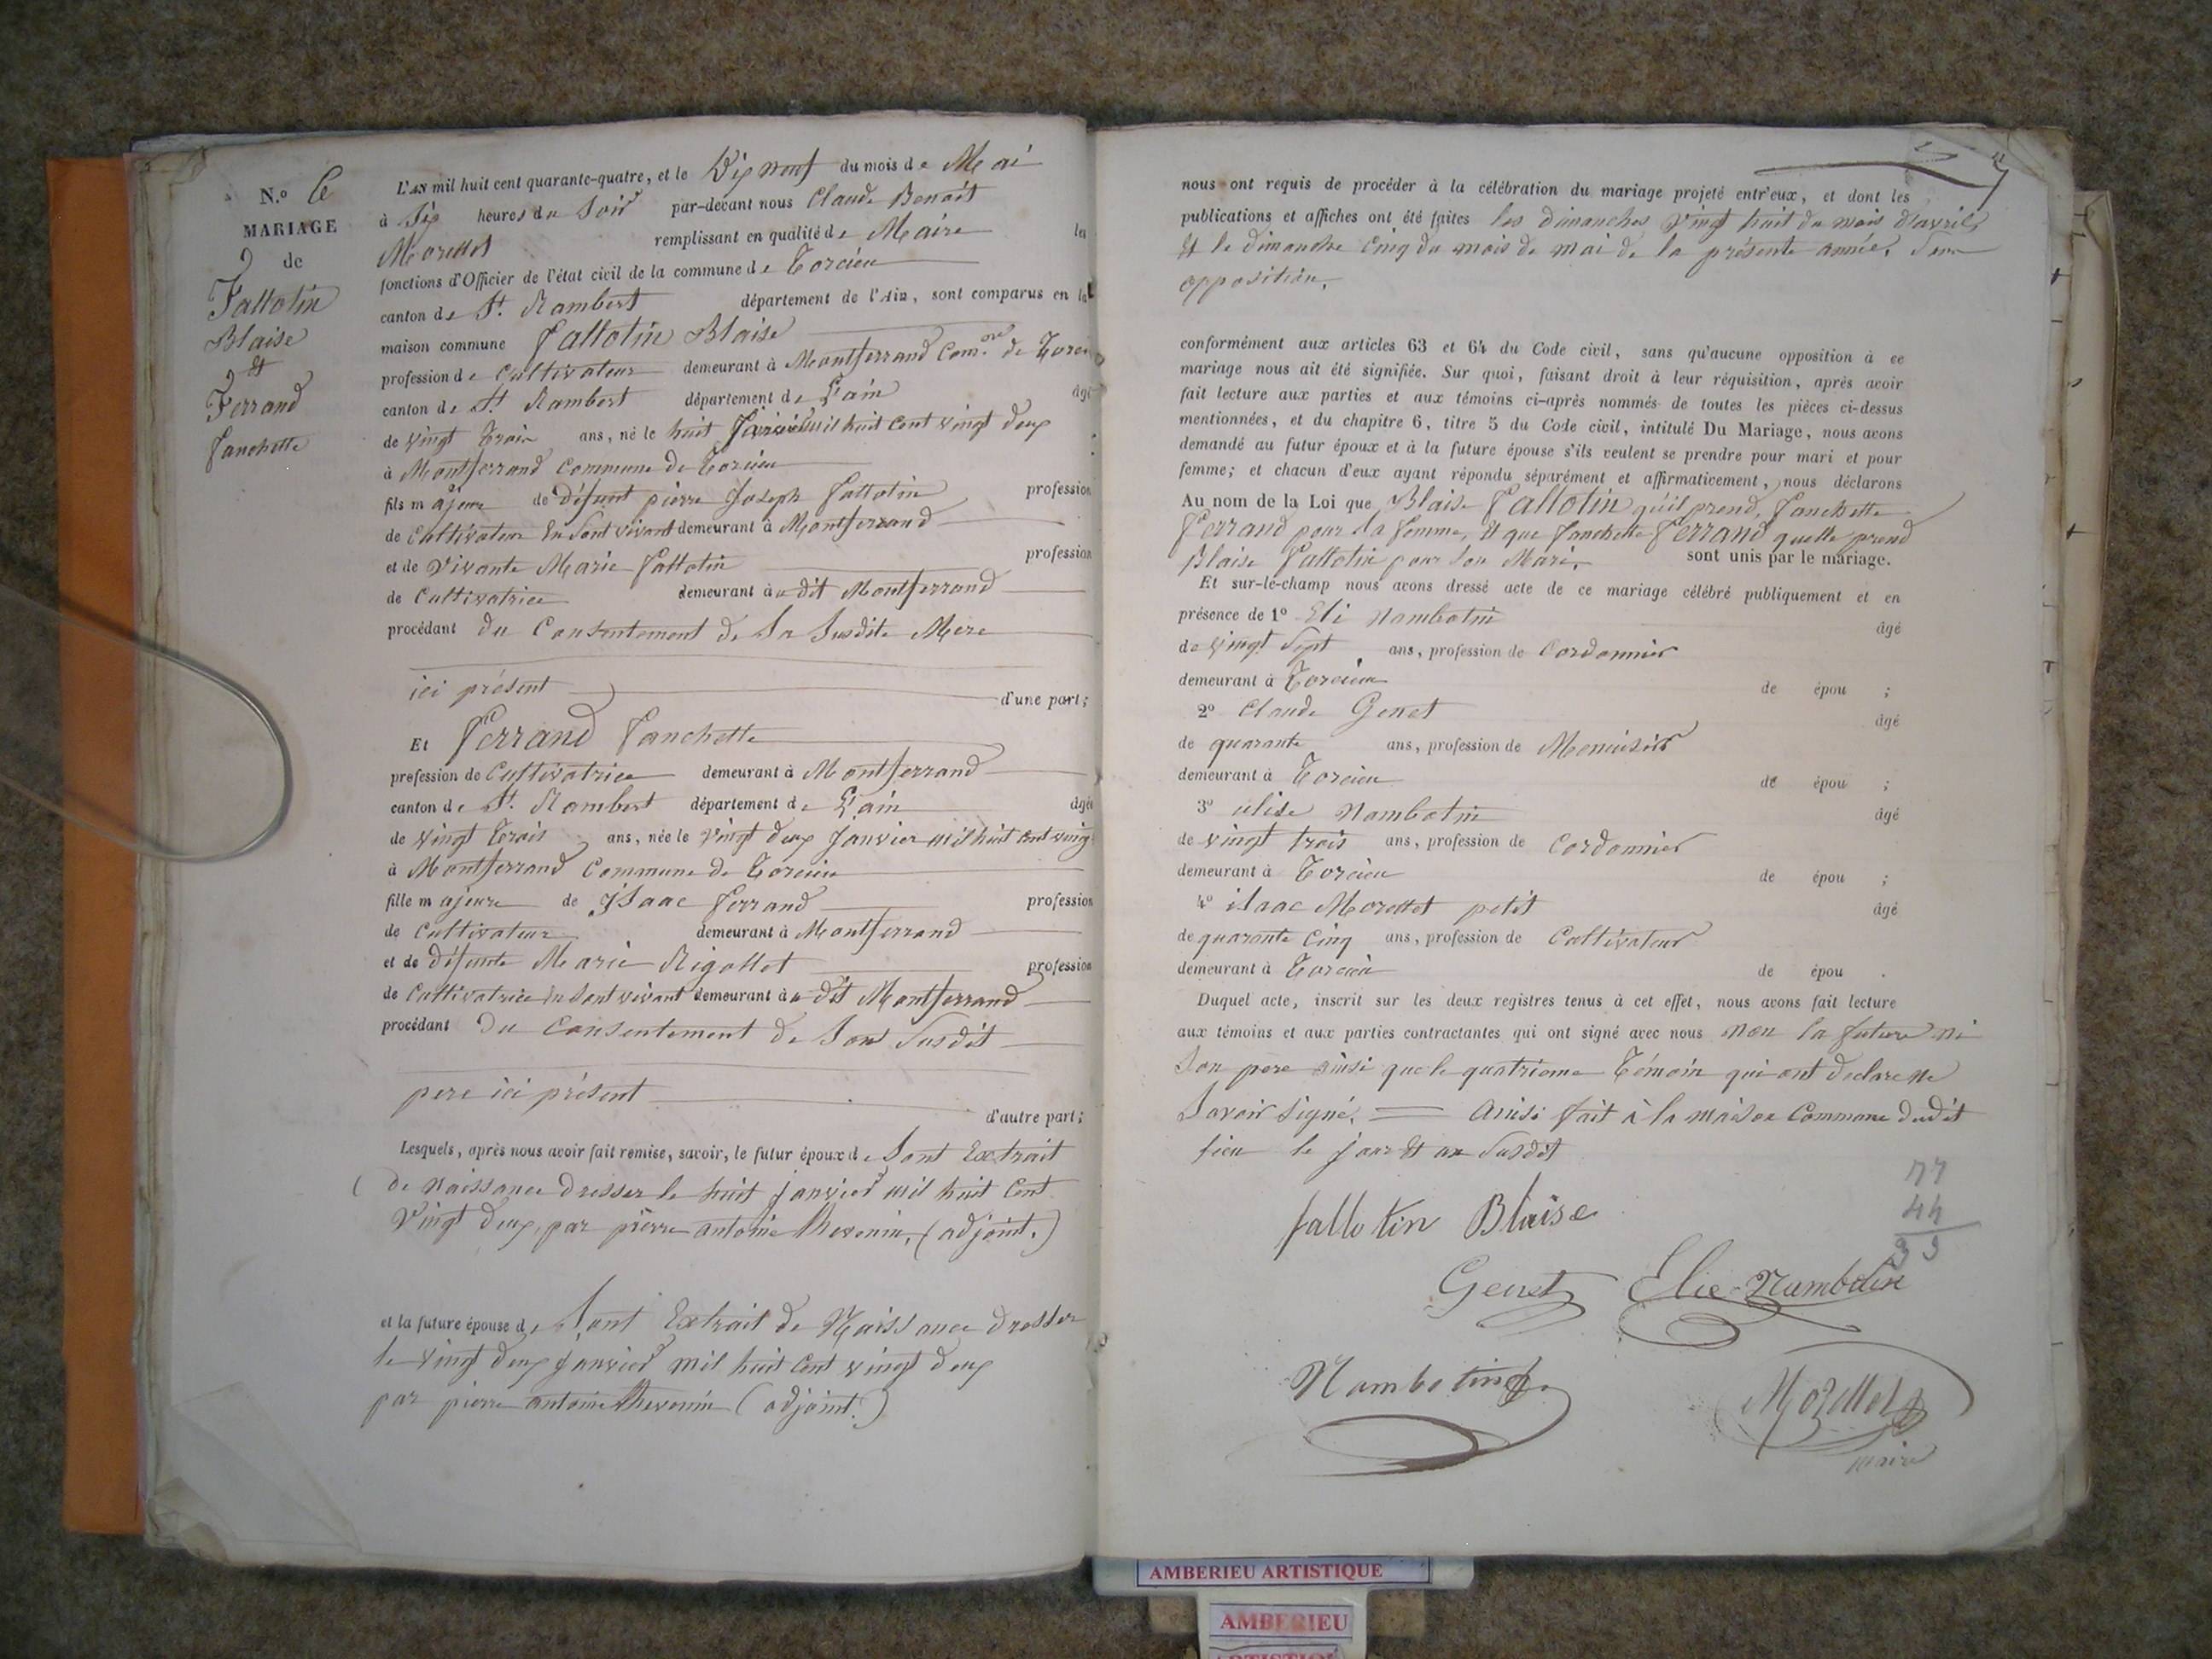 N.º 6
MARIAGE
de
Fallotin
Blaise
et
Ferrand
fanchette
L'AN mil huit cent quarante-quatre, et le Dix neuf du mois de Mai
à Six heures du Soir par-devant nous Claude Benoît
Morettet remplissant en qualité de Maire les
fonctions d'Officier de l'état civil de la commune de Torcieu
canton de St. Rambert département de l'Ain, sont comparus en la
maison commune Fallotin Blaise
profession de Cultivateur demeurant à Montferrand Com.ne de Torcieu
canton de St. Rambert département de L'ain âgé
de vingt Trois ans, né le huit Janvier mil huit cent vingt deux
à Montferrand Commune de Torcieu
fils majeur de défunt pierre Joseph fallotin profession
de Cultivateur En Sont vivant demeurant à Montferrand
et de Vivante Marie fallotin profession
de Cultivatrice demeurant à u dit Montferrand
procédant du Consentement de Sa Susdite Mere
ici présent d'une part;
Et Ferrand Fanchette
profession de Cultivatrice demeurant à Montferrand
canton de St. Rambert département de L'ain âgée
de vingt Trois ans, née le vingt deux Janvier mil huit cent vingt
à Montferrand Commune de Torcieu
fille majeure de JSaac Ferrand profession
de Cultivateur demeurant à Montferrand
et de défunte Marie Rigottet profession
de Cultivatrice En Sont vivant demeurant à u dit Montferrand
procédant du Consentement de Son Susdit
pere ici présent d'autre part;
Lesquels, après nous avoir fait remise, savoir, le futur époux de Sont Extrait
de Naissance dresser le huit janvier mil huit Cent
Vingt deux, par pierre antoine thevenin, (adjoint.)
et la future épouse de Sont Extrait de Naissance dresser
le vingt deux Janvier mil huit cent vingt deux
par pierre antoine thevenin (adjoint.)
nous ont requis de procéder à la célébration du mariage projeté entr'eux, et dont les
publications et affiches ont été faites les dimanches vingt huit du mois d'avril
Et le dimanche Cinq du mois de mai de la présente année, Sans
opposition.
conformément aux articles 63 et 64 du Code civil, sans qu'aucune opposition à ce
mariage nous ait été signifiée. Sur quoi, faisant droit à leur réquisition, après avoir
fait lecture aux parties et aux témoins ci-après nommés de toutes les pièces ci-dessus
mentionnées, et du chapitre 6, titre 5 du Code civil, intitulé Du Mariage, nous avons
demandé au futur époux et à la future épouse s'ils veulent se prendre pour mari et pour
femme; et chacun d'eux ayant répondu séparément et affirmativement, nous déclarons
Au nom de la Loi que Blaise Fallotin qu'il prend, Fanchette
Ferrand pour Sa femme, Et que fanchette Ferrand quelle prend
Blaise Fallotin pour Son Mari, sont unis par le mariage.
Et sur-le-champ nous avons dressé acte de ce mariage célébré publiquement et en
présence de 1º Eli Nambotin âgé
de vingt Sept ans, profession de Cordonnier
demeurant à Torcieu de épou ;
2º Claude Genet âgé
de quarante ans, profession de Menuisier
demeurant à Torcieu de épou ;
3º ulise Nambotin âgé
de vingt trois ans, profession de Cordonnier
demeurant à Torcieu de épou ;
4º isaac Morettet petit âgé
de quarante Cinq ans, profession de Cultivateur
demeurant à Torcieu de épou .
Duquel acte, inscrit sur les deux registres tenus à cet effet, nous avons fait lecture
aux témoins et aux parties contractantes qui ont signé avec nous non la future ni
Son pere ainsi que le quatrieme Témoin qui ont declare ne
Savoir Signé. ainsi fait à la maison Commune dudit
lieu le jour Et an Susdit
77
44
33
fallotin Blaise
Genet Elie Nambotin
Nambotin
Morettet
maire
AMBERIEU ARTISTIQUE
AMBERIEU
ARTISTIQUE